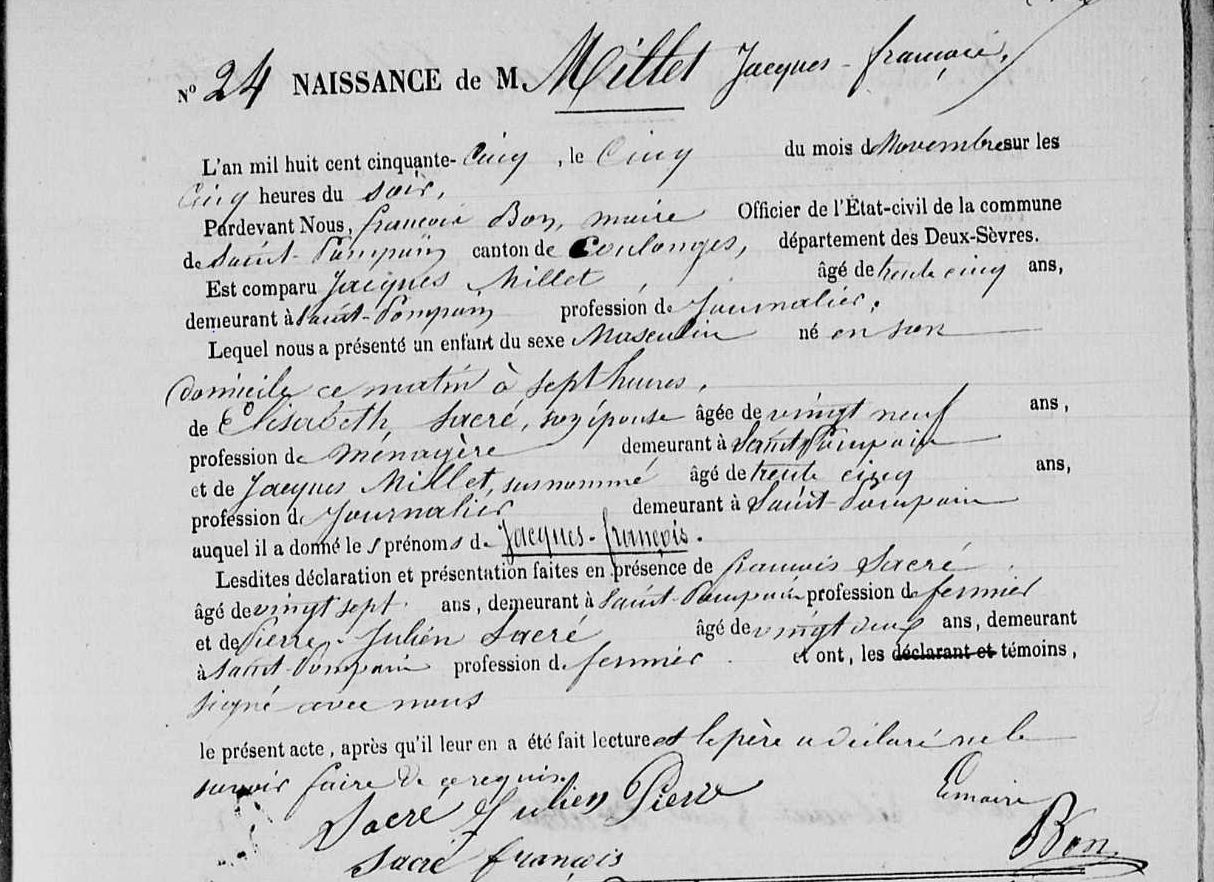 N° 24 NAISSANCE de M. Millet Jacques-françois.
L'an mil huit cent cinquante-Cinq, le Cinq du mois de Novembre sur les
Cinq heures du soir,
Pardevant Nous, françois Bon, maire Officier de l'État-civil de la commune
de Saint-Pompain canton de Coulonges, département des Deux-Sèvres.
Est comparu Jacques Millet âgé de trente cinq ans,
demeurant à Saint-Pompain profession de Journalier,
Lequel nous a présenté un enfant du sexe Masculin né en son
domicile ce matin à sept heures,
de Elisabeth Sacré, son épouse âgée de vingt neuf ans,
profession de Ménagère demeurant à Saint-Pompain
et de Jacques Millet, susnommé âgé de trente cinq ans,
profession de Journalier demeurant à Saint-Pompain
auquel il a donné les prénoms de Jacques-françois.
Lesdites déclaration et présentation faites en présence de françois Sacré
âgé de vingt sept ans, demeurant à Saint-Pompain profession de fermier
et de Pierre-Julien Sacré âgé de vingt deux ans, demeurant
à Saint-Pompain profession de fermier et ont, les déclarant et témoins,
signé avec nous
le présent acte, après qu'il leur en a été fait lecture et le père a déclaré ne le
savoir faire de ce requis.
Sacré Julien Pierre Le maire
Sacré françois Bon